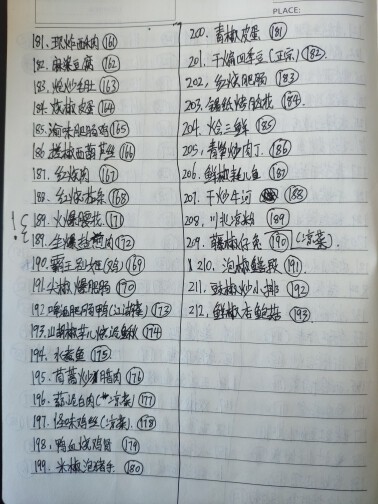 PLACE:
181. 现炸酥肉 (161)
182. 麻婆豆腐 (162)
183. 炝炒毛肚 (163)
184. 烧椒皮蛋 (164)
185. 渝味肥肠鸡 (165)
186. 搓椒西葫芦丝 (166)
187. 红烧肉 (167)
188. 红烧 (168)
189. 火爆腰花 (171)
189. 生爆盐煎肉 (172)
190. 霸王别姬(鸡) (169)
191. 尖椒爆肥肠 (170)
192. 啤酒肥肠鸭(江湖菜) (173)
193. 山胡椒芋儿烧泥鳅 (174)
194. 水煮鱼 (175)
195. 茼蒿炒腊肉 (176)
196. 蒜泥白肉(凉菜) (177)
197. 怪味鸡丝(凉菜) (178)
198. 鸭血烧鸡杂 (179)
199. 米椒泡猪手 (180)
200. 青椒皮蛋 (181)
201. 干煸四季豆(正宗) (182)
202. 红烧肥肠 (183)
203. 锡纸烤脑花 (184)
204. 烩三鲜 (185)
205. 青笋炒肉丁 (186)
206. 鲜椒耗儿鱼 (187)
207. 干炒牛河 (188)
208. 川北凉粉 (189)
209. 藤椒仔兔 (190) (凉菜)
210. 泡椒鳝段 (191)
211. 豉椒炒小排 (192)
212. 鲜椒杏鲍菇 (193)